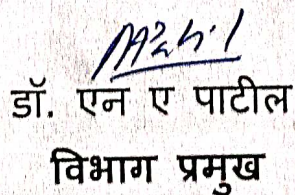 डॉ. एन ए पाटील
विभाग प्रमुख